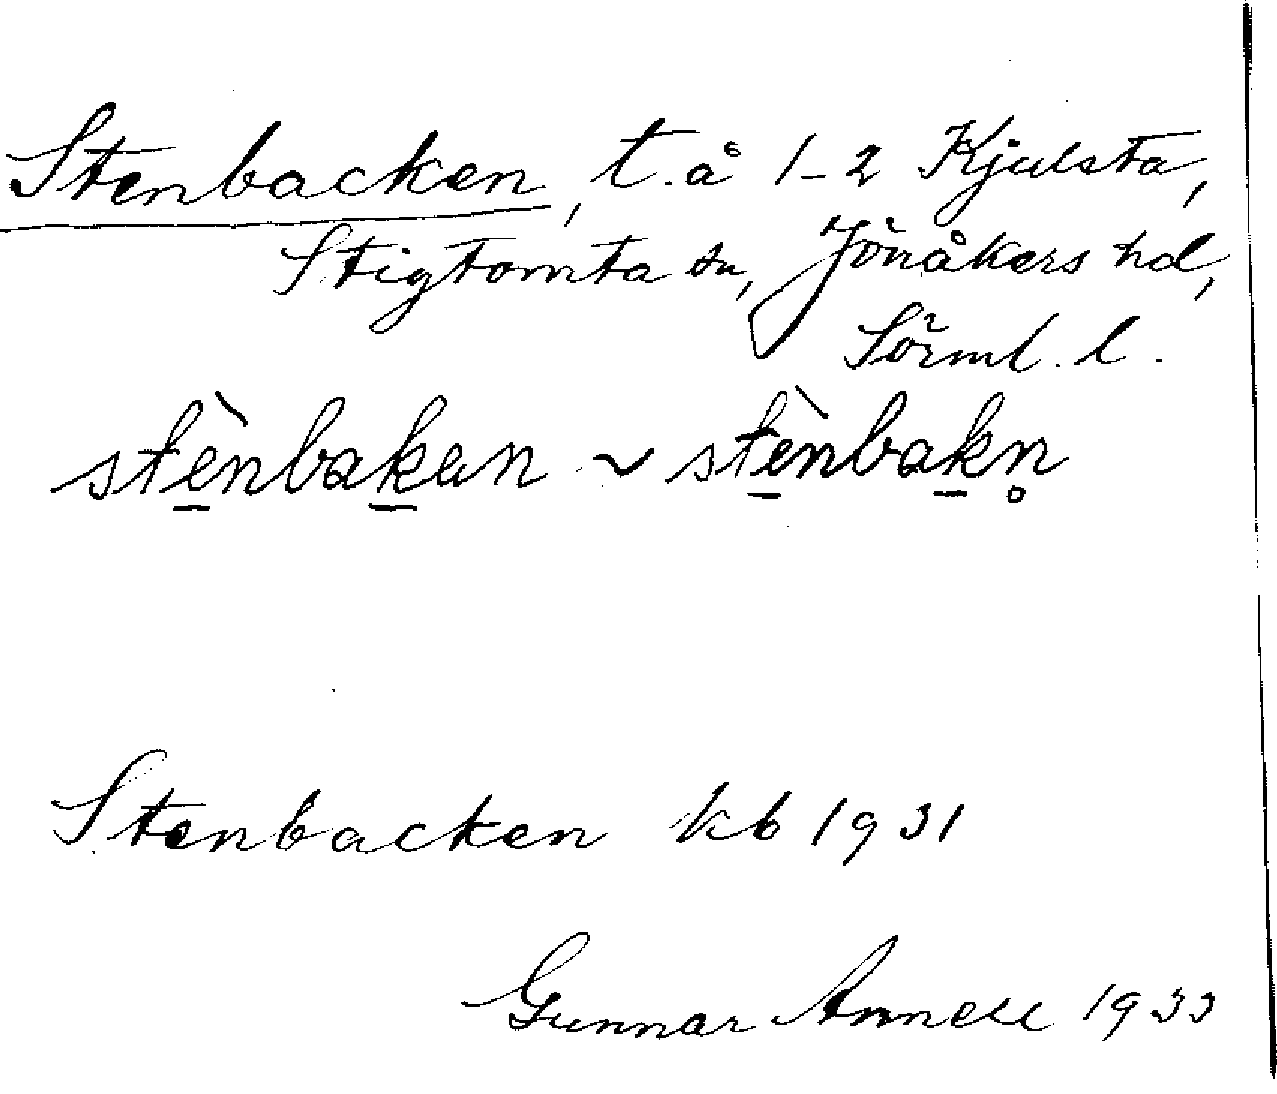 Stenbacken, t. å 1-2 Kjulsta,
Stigtomta sn, Jönåkers hd,
Sörml. l.
stè̱nbaḵan ~ stè̱nbaḵn̥
Stenbacken kb 1931
Gunnar Annell 1933